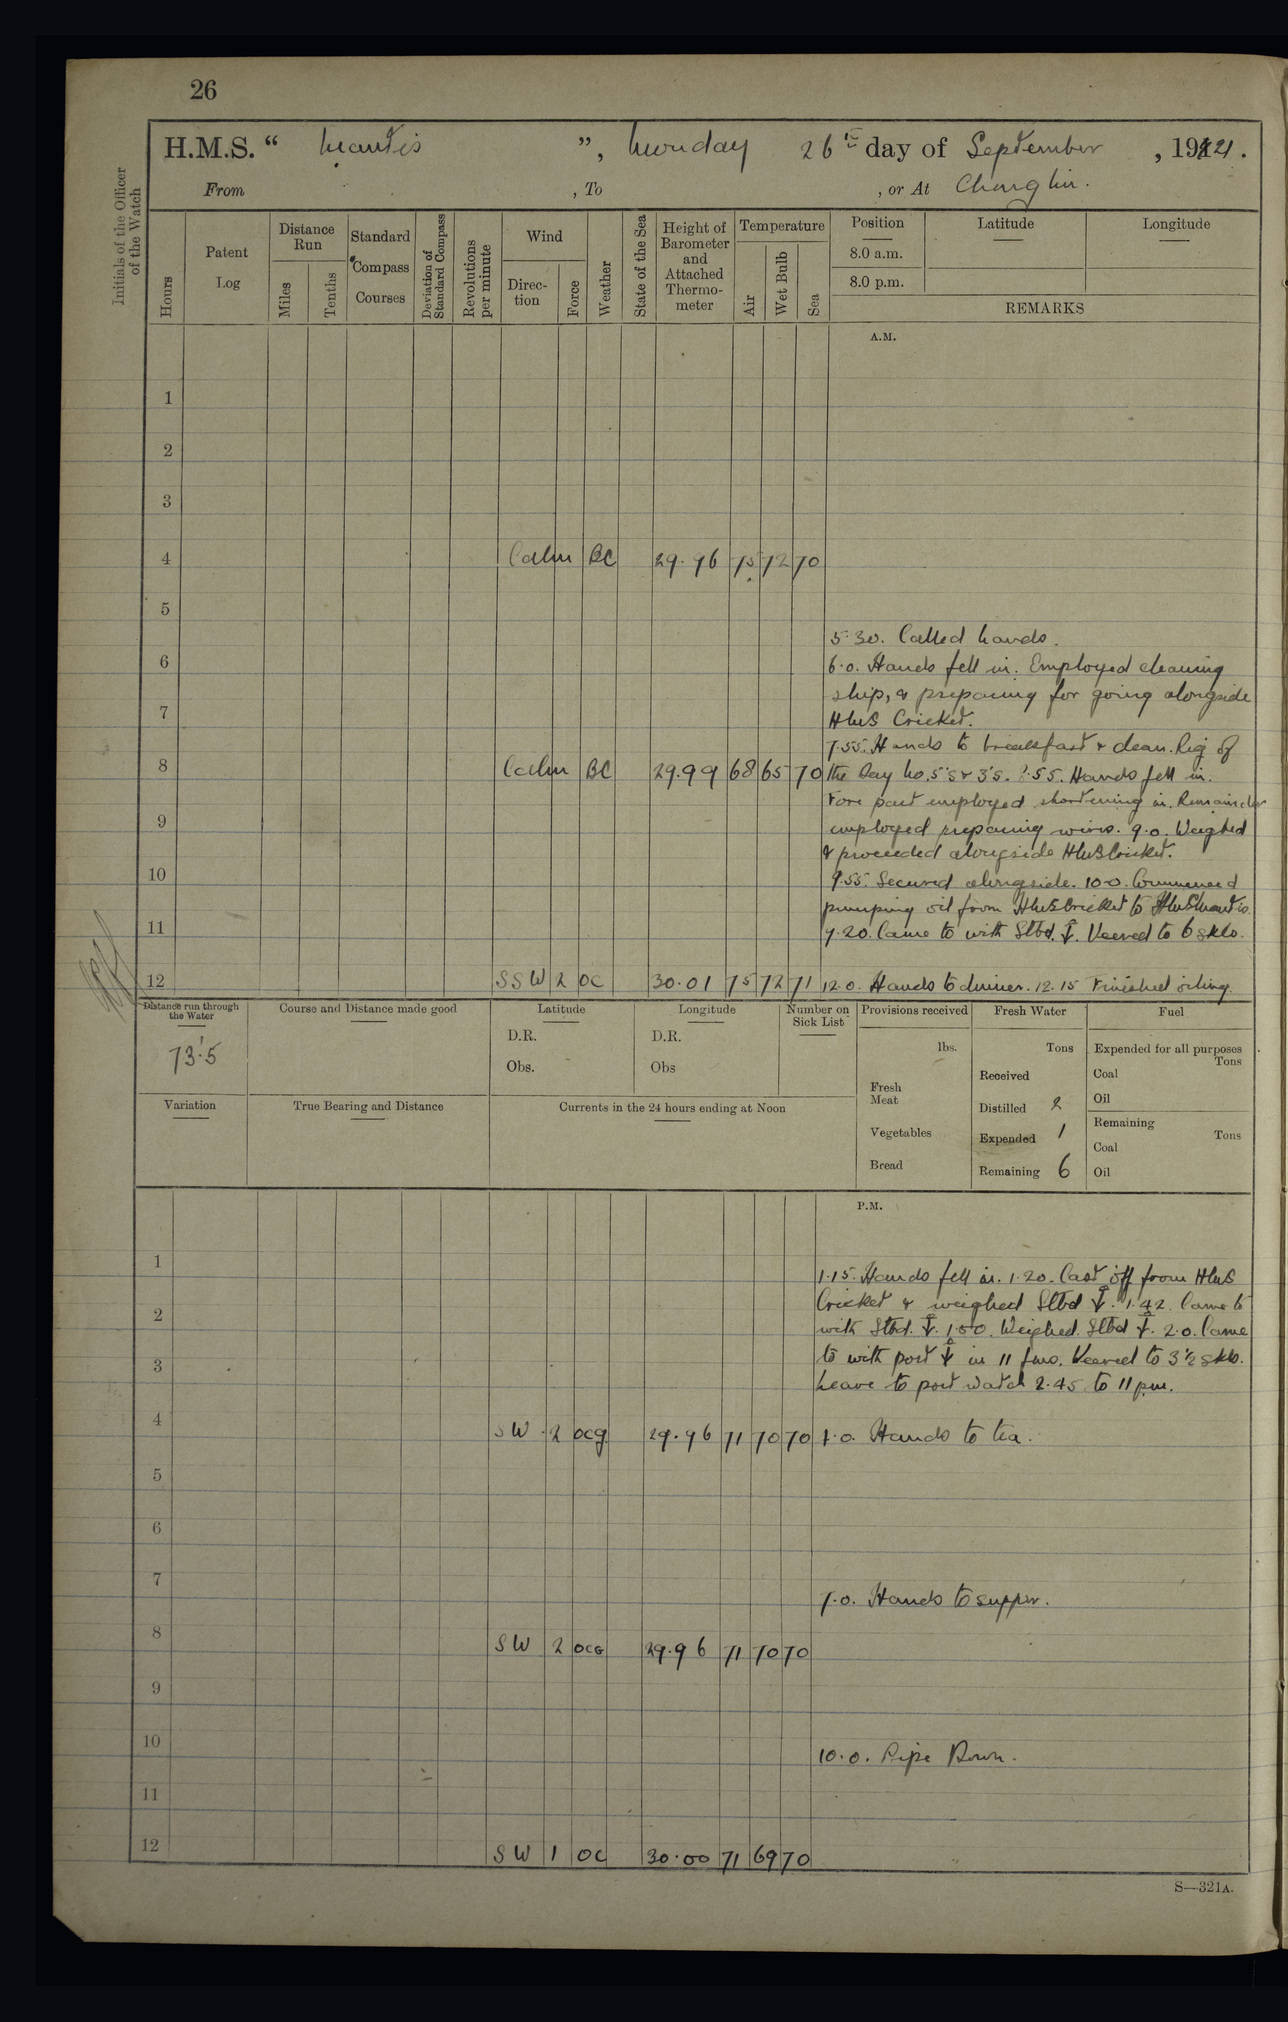 26
H.M.S. “ Mantis ”, Monday 26th day of September, 1921.
From , To , or At Chunglin.
Initials of the Officer of the Watch
Hours
Patent Log
Distance Run
Miles
Tenths
Standard Compass Courses
Deviation of Standard Compass
Revolutions per minute
Wind
Direction
Force
Weather
State of the Sea
Height of Barometer and Attached Thermometer
Temperature
Air
Wet Bulb
Sea
Position
8.0 a.m.
8.0 p.m.
Latitude
Longitude
REMARKS
A.M.
1
2
3
4 Calm BC 29.96 75 72 70
5
5.30. Called hands.
6
6.0. Hands fell in. Employed cleaning
ship, & preparing for going alongside
7
HMS Cricket.
7.55. Hands to breakfast & clean. Rig of
8 Calm BC 29.99 68 65 70 the Day No. 5's & 3's. 8.55. Hands fell in.
Fore part employed shortening in. Remainder
9
employed preparing wires. 9.0. Weighed
& proceeded alongside HMS Cricket.
10
9.55. Secured alongside. 10.0. Commenced
pumping oil from HMS Cricket to HMS Mantis.
11
9.20. Came to with Stbd. ⚓. Veered to 6 skls.
12 SSW 2 OC 30.01 75 72 71 12.0. Hands to dinner. 12.15 Finished oiling.
Distance run through the Water
73.5
Course and Distance made good
Latitude
D.R.
Obs.
Longitude
D.R.
Obs
Number on Sick List
Provisions received
lbs.
Fresh Meat
Vegetables
Bread
Fresh Water
Tons
Received
Distilled 2
Expended 1
Remaining 6
Fuel
Expended for all purposes
Tons
Coal
Oil
Remaining
Tons
Coal
Oil
Variation
True Bearing and Distance
Currents in the 24 hours ending at Noon
P.M.
1
1.15. Hands fell in. 1.20. Cast off from HMS
Cricket & weighed Stbd ⚓. 1.42. Came to
2
with Stbd. ⚓. 1.50. Weighed Stbd ⚓. 2.0. Came
3
to with port ⚓ in 11 fms. Veered to 3½ skls.
Leave to port watch 2.45 to 11 pm.
4 SW 2 ocg 29.96 71 70 70 4.0. Hands to tea.
5
6
7
7.0. Hands to supper.
8 SW 2 OCG 29.96 71 70 70
9
10
10.0. Pipe Down.
11
12 SW 1 OC 30.00 71 69 70
S—321A.